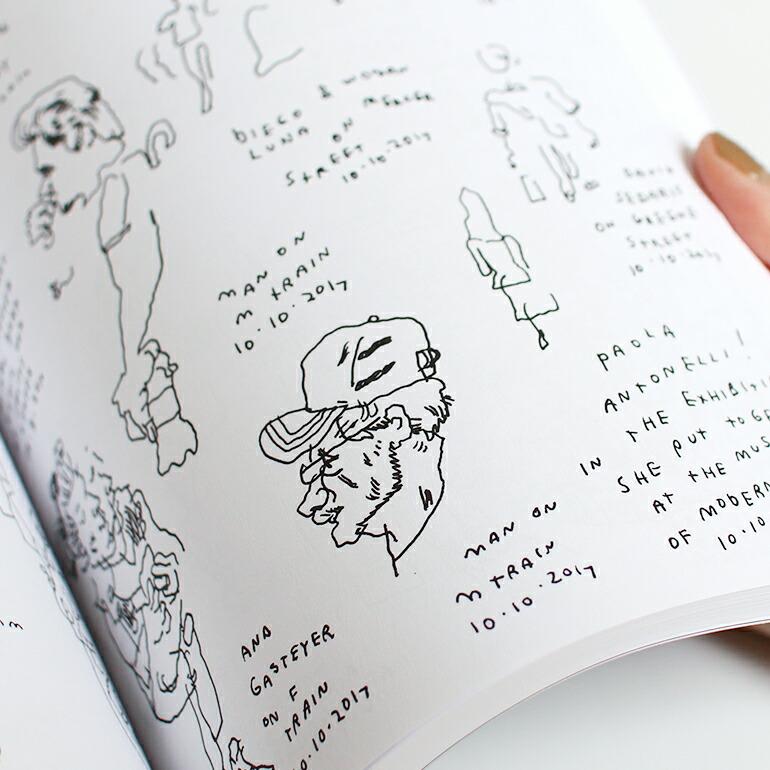 DIEGO & WOMAN
LUNA ON MERCER
STREET
10.10.2017
DAVID
SEDARIS
ON GREENE
STREET
10.10.2017
MAN ON
M TRAIN
10.10.2017
PAOLA
ANTONELLI!
IN THE EXHIBITI
SHE PUT TOGE
AT THE MUS
OF MODERN
10.10
MAN ON
M TRAIN
10.10.2017
ANA
GASTEYER
ON F
TRAIN
10.10.2017